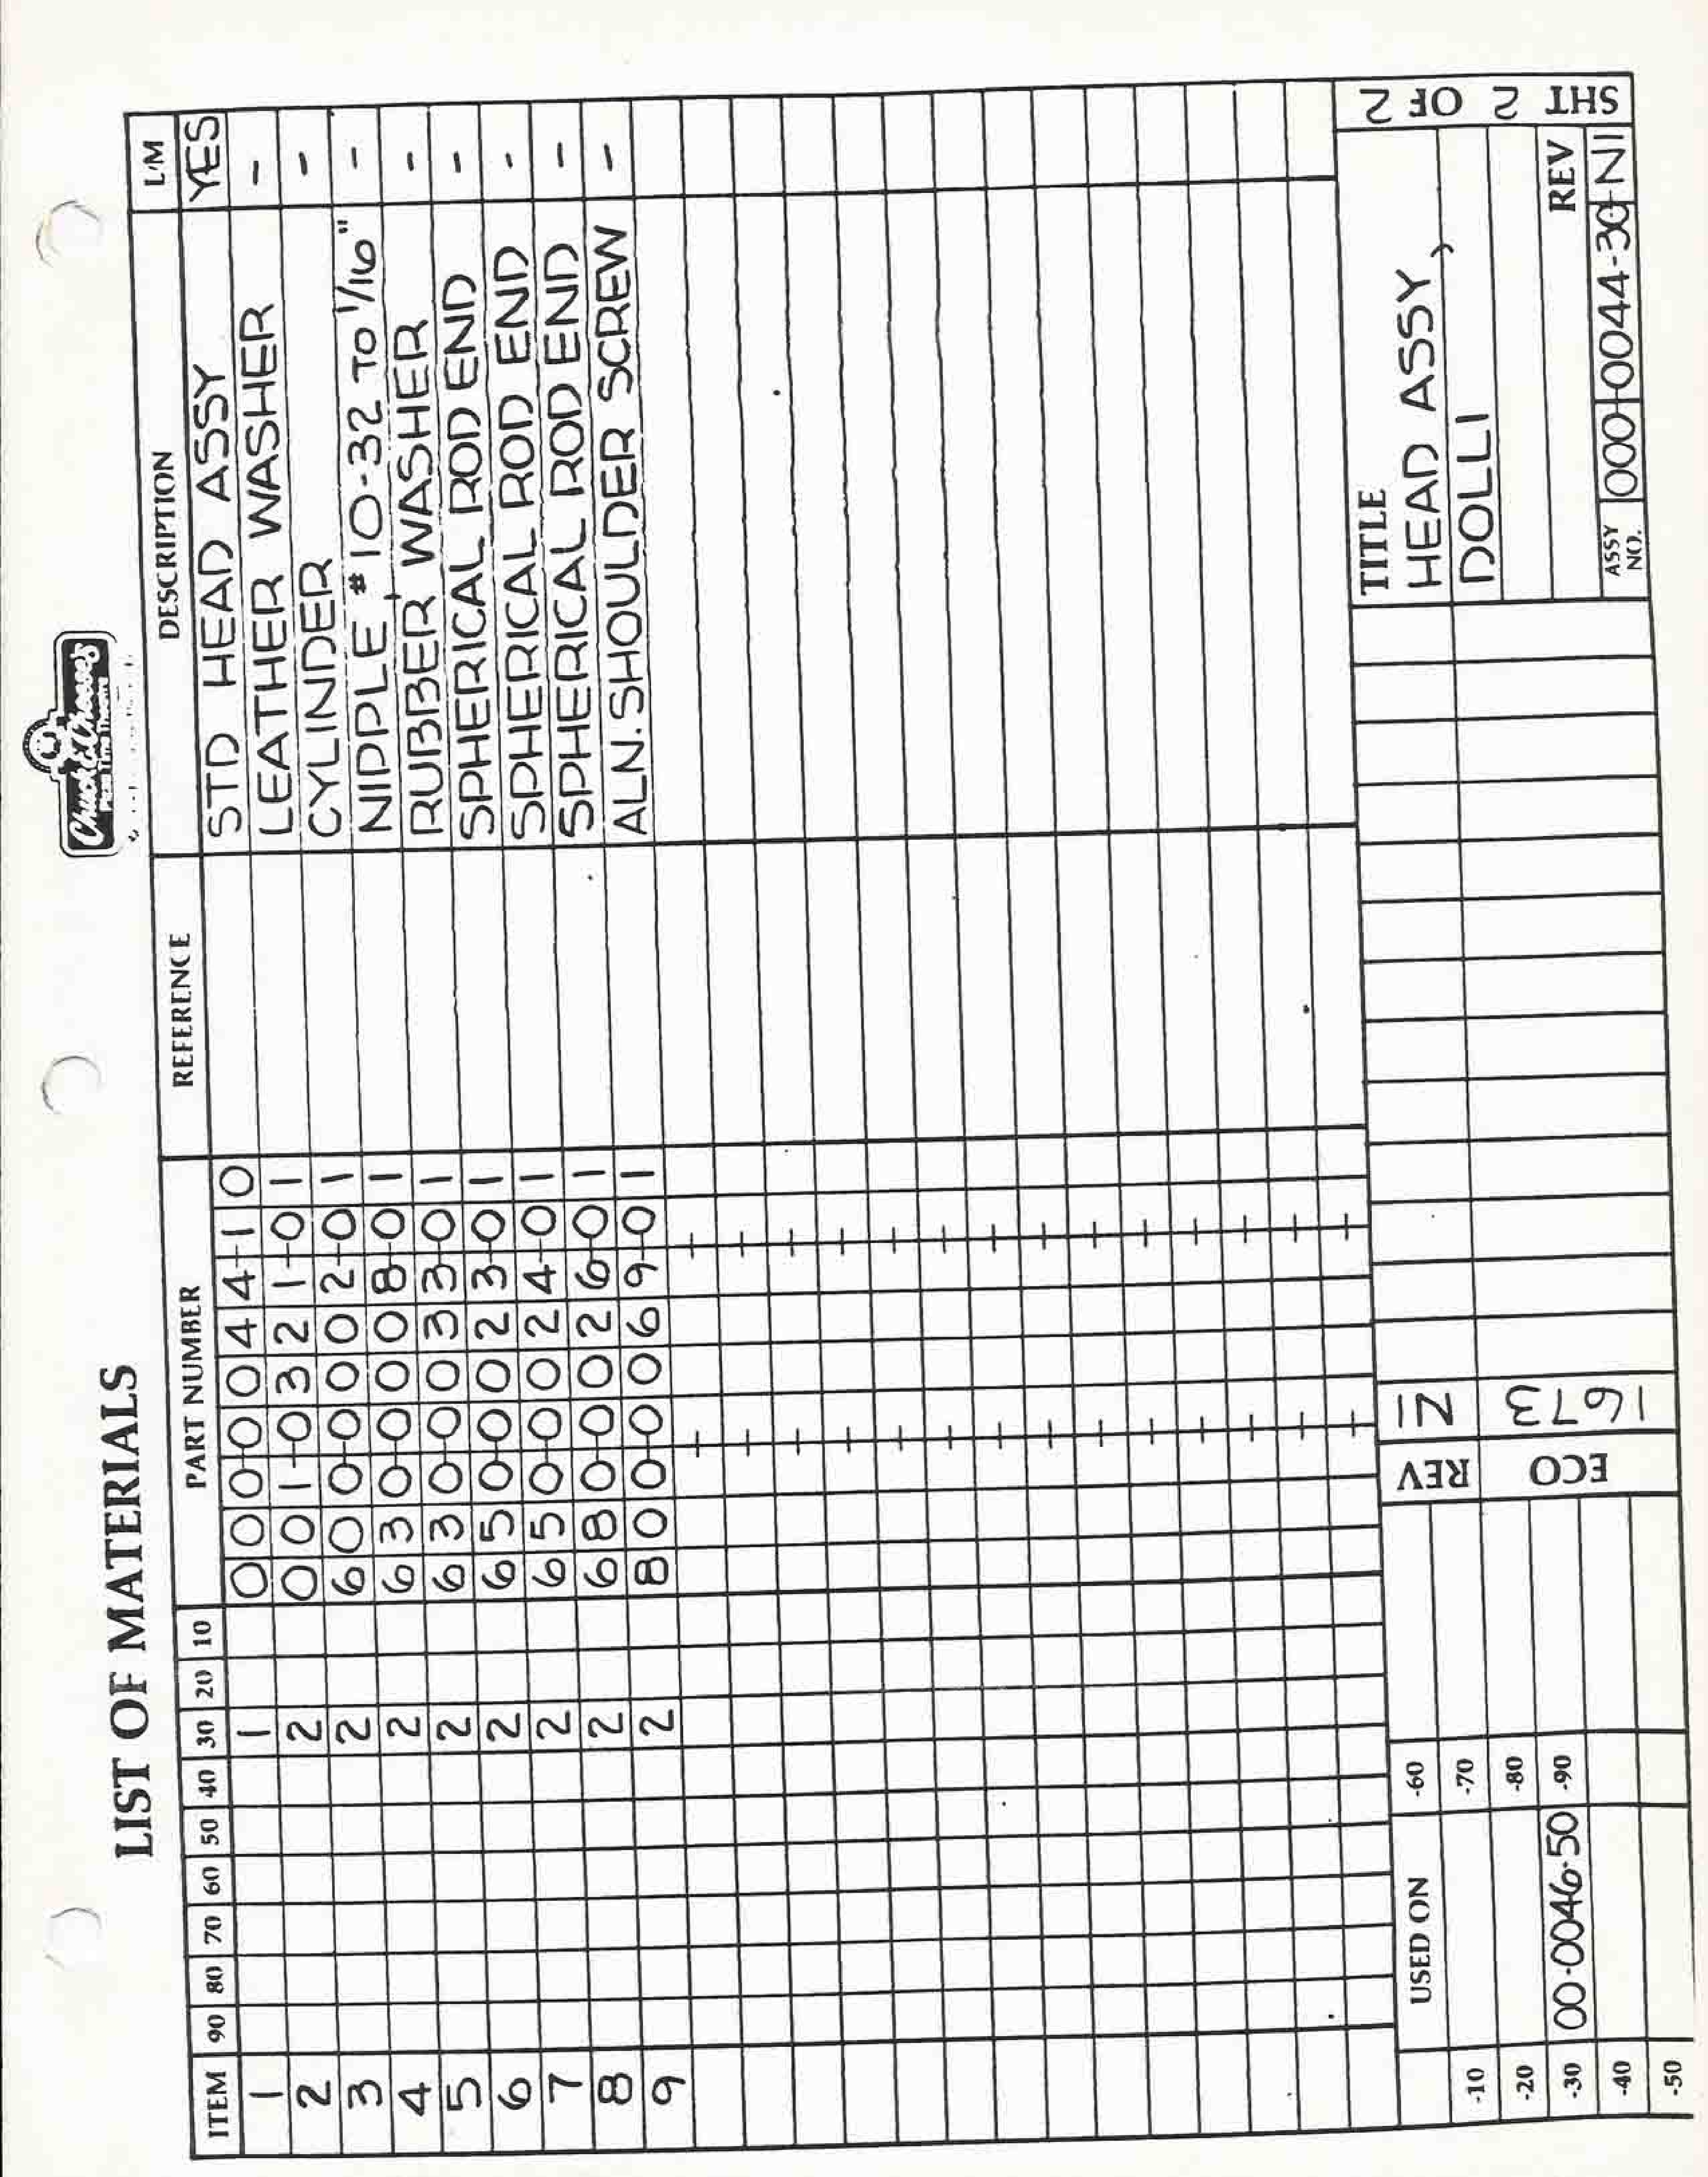 Chuck E. Cheese's
Pizza Time Theatre
LIST OF MATERIALS
ITEM 90 80 70 60 50 40 30 20 10 PART NUMBER REFERENCE DESCRIPTION L/M
1 1 000-0044-10 STD HEAD ASSY YES
2 2 001-0321-01 LEATHER WASHER -
3 2 600-0002-01 CYLINDER -
4 2 630-0008-01 NIPPLE, #10-32 TO 1/16" -
5 2 630-0033-01 RUBBER WASHER -
6 2 650-0023-01 SPHERICAL ROD END -
7 2 650-0024-01 SPHERICAL ROD END -
8 2 680-0026-01 SPHERICAL ROD END -
9 2 800-0069-01 ALN. SHOULDER SCREW -
USED ON
-10 -60
-20 -70
-30 00-0046-50 -80
-40 -90
-50
REV N1
ECO 1673
TITLE
HEAD ASSY,
DOLLI
REV
ASSY NO. 000-0044-30 - N1
SHT 2 OF 2